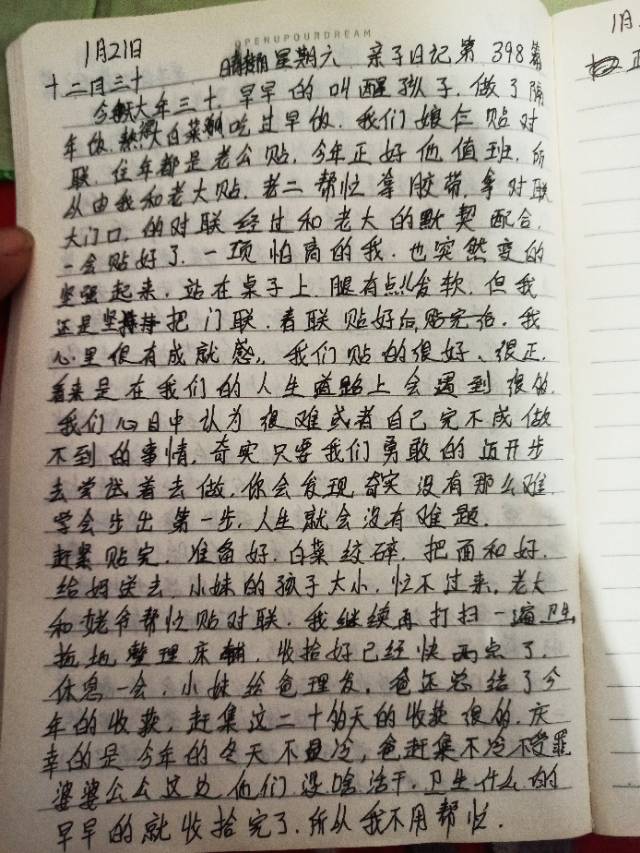 OPENUPOURDREAM
1月21日 星期六 亲子日记第398篇
十二月三十
今天大年三十,早早的叫醒孩子,做了隔
年饭,熬大白菜,吃过早饭,我们娘仨贴对
联,往年都是老公贴,今年正好他值班,所
从由我和老大贴,老二帮忙拿胶带,拿对联
大门口,的对联经过和老大的默契配合,
一会贴好了,一项怕高的我,也突然变的
坚强起来,站在桌子上,腿有点儿发软,但我
还是坚持把门联,春联贴好后,贴完后,我
心里很有成就感,我们贴的很好、很正,
看来是在我们的人生道路上会遇到很多,
我们心目中认为很难或者自己完不成做
不到的事情,奇实只要我们勇敢的迈开步
去尝试着去做,你会发现奇实没有那么难,
学会步出第一步,人生就会没有难题.
赶紧贴完,准备好,白菜绞碎,把面和好,
给妈送去,小妹的孩子大小,忙不过来,老大
和姥爷帮忙贴对联,我继续再打扫一遍卫生,
拖地整理床铺,收拾好已经快两点了,
休息一会,小妹给爸理发,爸还总结了今
年的收获,赶集这二十的天的收获很的,庆
幸的是今年的冬天不是冷,爸赶集不冷不受罪
婆婆公公这边他们没啥活干,卫生什么的
早早的就收拾完了,所从我不用帮忙.
1月